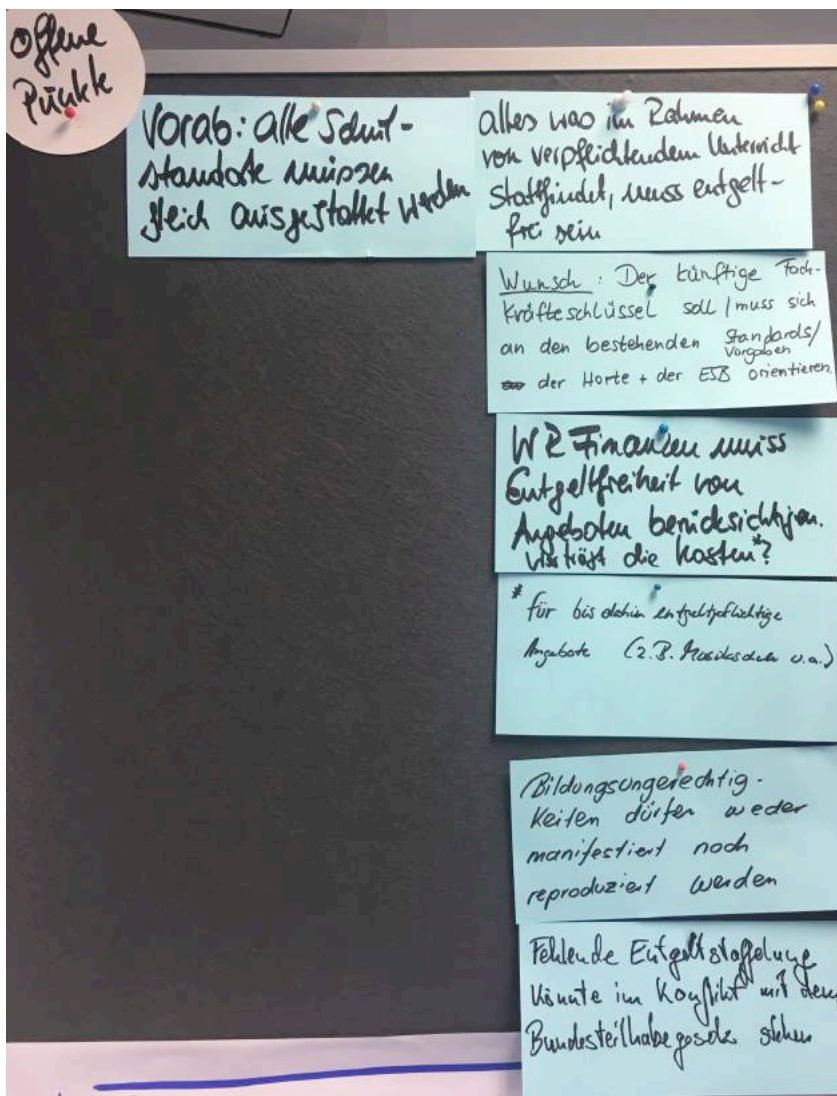 Offene
Punkte
Vorab: alle Schul-
standorte müssen
gleich ausgestattet werden
alles was im Rahmen
von verpflichtendem Unterricht
stattfindet, muss entgelt-
frei sein
Wunsch: Der künftige Fach-
kräfteschlüssel soll / muss sich
an den bestehenden Standards/
Vorgaben
der Horte + der ESB orientieren.
WR Finanzen muss
Entgeltfreiheit von
Angeboten berücksichtigen.
Wer trägt die Kosten*?
* für bis dahin entgeltpflichtige
Angebote (z.B. Musikschule u.a.)
Bildungsungerechtig-
keiten dürfen weder
manifestiert noch
reproduziert werden
Fehlende Entgeltstaffelung
könnte im Konflikt mit dem
Bundesteilhabegesetz stehen